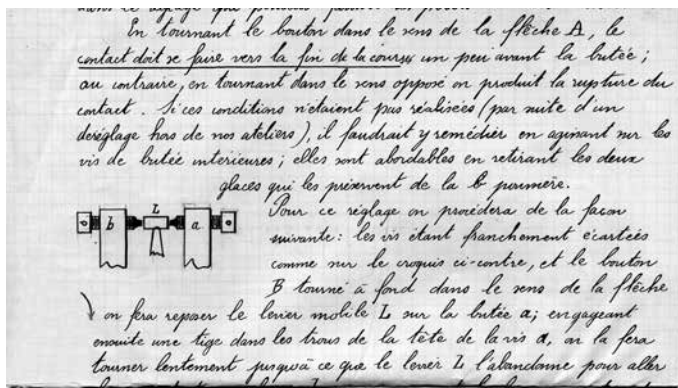 En tournant le bouton dans le sens de la flêche A, le
contact doit se faire vers la fin de la course un peu avant la butée ;
au contraire, en tournant dans le sens opposé on produit la rupture du
contact. Si ces conditions n'étaient pas réalisées (par suite d'un
deréglage hors de nos ateliers), il faudrait y remédier en agissant sur les
vis de butée intérieures ; elles sont abordables en retirant les deux
glaces qui les préservent de la poussière.
b L a
Pour ce réglage on procédera de la façon
suivante : les vis étant franchement écartées
comme sur le croquis ci-contre, et le bouton
B tourné à fond dans le sens de la flêche
on fera reposer le levier mobile L sur la butée a; engageant
ensuite une tige dans les trous de la tête de la vis a, on la fera
tourner lentement jusqu'à ce que le levier L l'abandonne pour aller